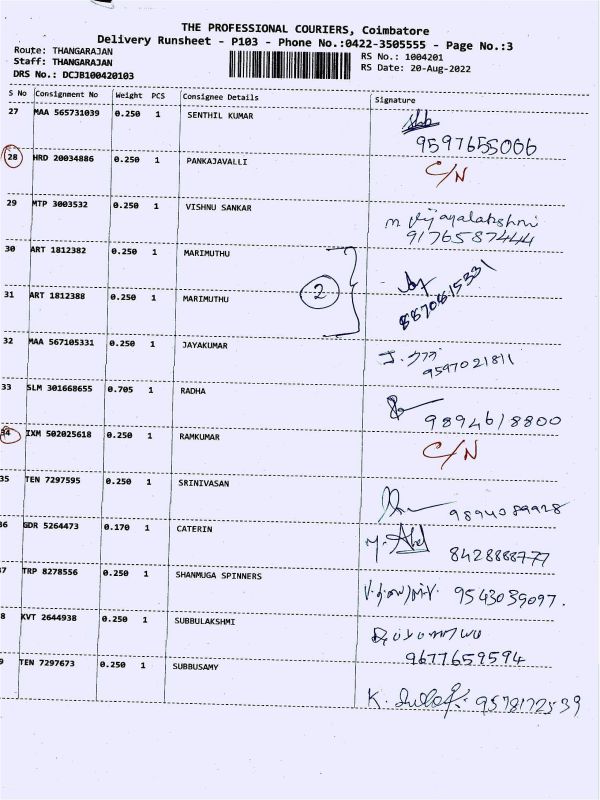 THE PROFESSIONAL COURIERS, Coimbatore
Delivery Runsheet - P103 - Phone No.:0422-3505555 - Page No.:3
Route: THANGARAJAN
Staff: THANGARAJAN
DRS No.: DCJB100420103
RS No.: 1004201
RS Date: 20-Aug-2022
S No Consignment No Weight PCS Consignee Details Signature
27 MAA 565731039 0.250 1 SENTHIL KUMAR
9597655066
28 HRD 20034886 0.250 1 PANKAJAVALLI C/N
29 MTP 3003532 0.250 1 VISHNU SANKAR m Vijayalakshmi
9176587444
30 ART 1812382 0.250 1 MARIMUTHU
2
31 ART 1812388 0.250 1 MARIMUTHU
32 MAA 567105331 0.250 1 JAYAKUMAR
9597021811
33 SLM 301668655 0.705 1 RADHA
9894618800
34 IXM 502025618 0.250 1 RAMKUMAR C/N
35 TEN 7297595 0.250 1 SRINIVASAN
9894089928
36 GDR 5264473 0.170 1 CATERIN
8428888777
37 TRP 8278556 0.250 1 SHANMUGA SPINNERS 9543039097.
8 KVT 2644938 0.250 1 SUBBULAKSHMI
9677659594
9 TEN 7297673 0.250 1 SUBBUSAMY
K. 9578172539